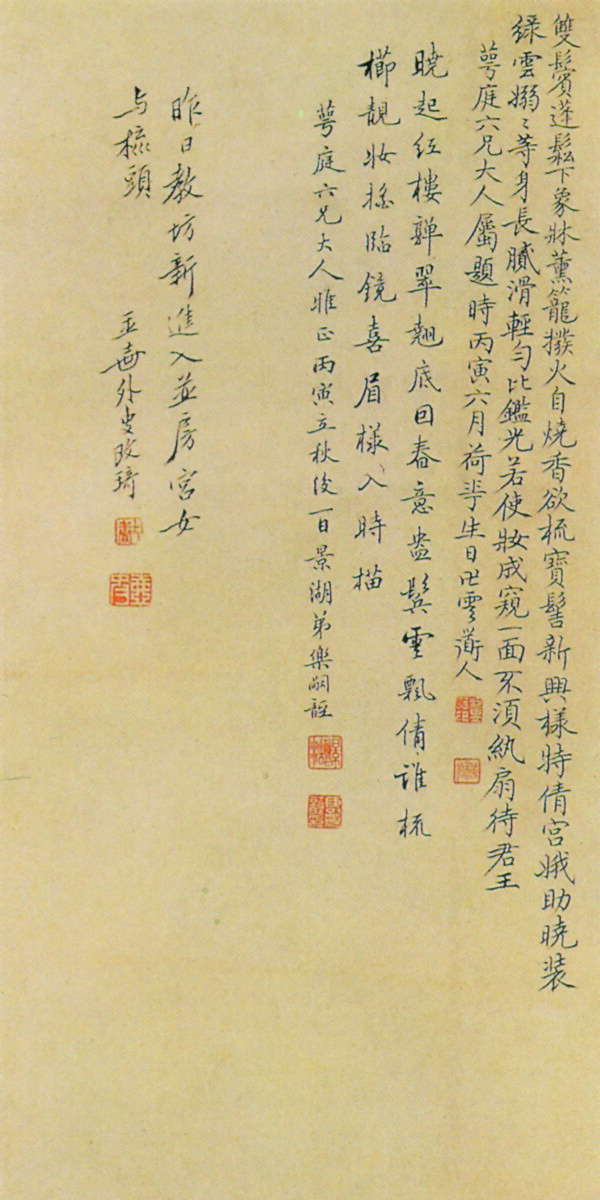 雙鬢蓬鬆下象牀薰籠撥火自燒香欲梳寶髻新興樣特倩宮娥助曉装
綠雲嫋〻等身長膩滑輕勻比鑑光若使妝成窺一面不須紈扇待君王
萼庭六兄大人屬題時丙寅六月荷花生日卍雲道人
曉起红樓嚲翠翹底回春意盎鬓雲飄倩誰梳
櫛靚妝搖臨鏡喜眉樣入時描
萼庭六兄大人雅正丙寅立秋後一日景湖弟樂嗣
昨日教坊新進入並房宮女
与梳頭
玉壺外史改琦